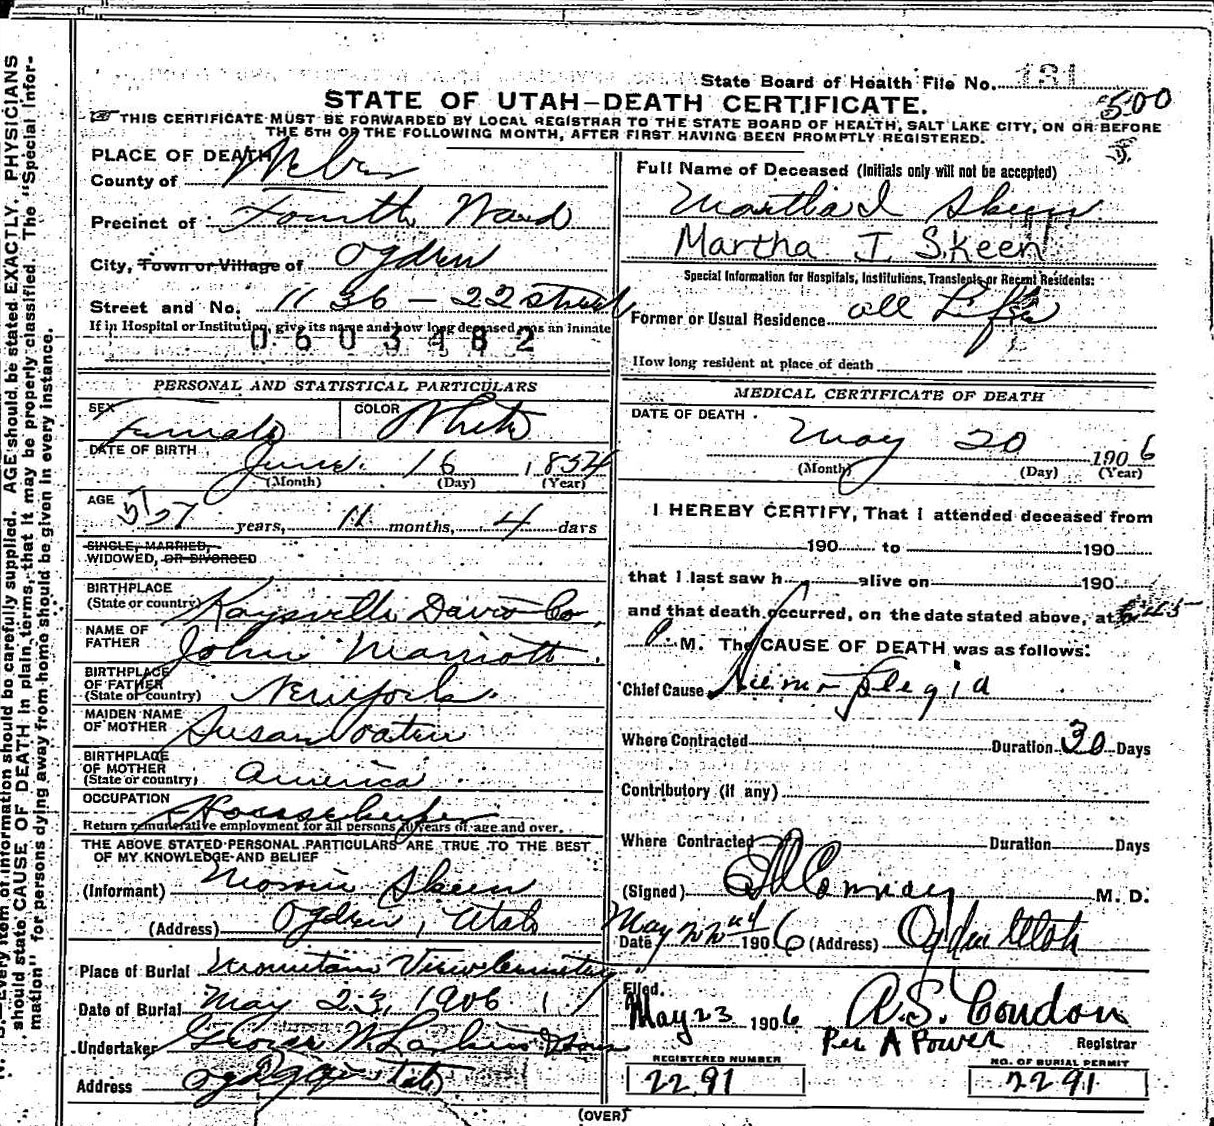 State Board of Health File No. 131
STATE OF UTAH—DEATH CERTIFICATE.
500
THIS CERTIFICATE MUST BE FORWARDED BY LOCAL REGISTRAR TO THE STATE BOARD OF HEALTH, SALT LAKE CITY, ON OR BEFORE
THE 5TH OF THE FOLLOWING MONTH, AFTER FIRST HAVING BEEN PROMPTLY REGISTERED.
PLACE OF DEATH
County of Weber
Precinct of Fourth Ward
City, Town or Village of Ogden
Street and No. 1136 - 22 street
If in Hospital or Institution, give its name and how long deceased was an inmate
0603482
PERSONAL AND STATISTICAL PARTICULARS
SEX Female COLOR White
DATE OF BIRTH June 16 1854
(Month) (Day) (Year)
AGE 51 years, 11 months, 4 days
SINGLE, MARRIED,
WIDOWED, OR DIVORCED
BIRTHPLACE
(State or country) Kaysville Davis Co.
NAME OF
FATHER John Marriott.
BIRTHPLACE
OF FATHER
(State or country) New York.
MAIDEN NAME
OF MOTHER Susan
BIRTHPLACE
OF MOTHER
(State or country) America
OCCUPATION Housekeeper
Return remunerative employment for all persons 10 years of age and over.
THE ABOVE STATED PERSONAL PARTICULARS ARE TRUE TO THE BEST
OF MY KNOWLEDGE AND BELIEF
(Informant) Skeen
(Address) Ogden, Utah
Place of Burial Mountain View Cemetery
Date of Burial May 23, 1906
Undertaker W. Larkin & Sons
Address Ogden Utah
Full Name of Deceased (Initials only will not be accepted)
Martha I Skeen
Martha I Skeen
Special Information for Hospitals, Institutions, Transients or Recent Residents:
Former or Usual Residence all Life
How long resident at place of death
MEDICAL CERTIFICATE OF DEATH
DATE OF DEATH
May 20 1906
(Month) (Day) (Year)
I HEREBY CERTIFY, That I attended deceased from
190 to 190
that I last saw h alive on 190
and that death occurred, on the date stated above, at 6:45
P. M. The CAUSE OF DEATH was as follows:
Chief Cause Hemiplegia
Where Contracted Duration 30 Days
Contributory (if any)
Where Contracted Duration Days
(Signed) Conroy M. D.
Date May 22nd 1906 (Address) Ogden Utah
Filed.
May 23 1906 A. S. Condon
Per A Power Registrar
REGISTERED NUMBER
2291
NO. OF BURIAL PERMIT
2291
(OVER)
Every item of information should be carefully supplied. AGE should be stated EXACTLY. PHYSICIANS
should state CAUSE OF DEATH in plain terms, that it may be properly classified. The "Special Infor-
mation" for persons dying away from home should be given in every instance.